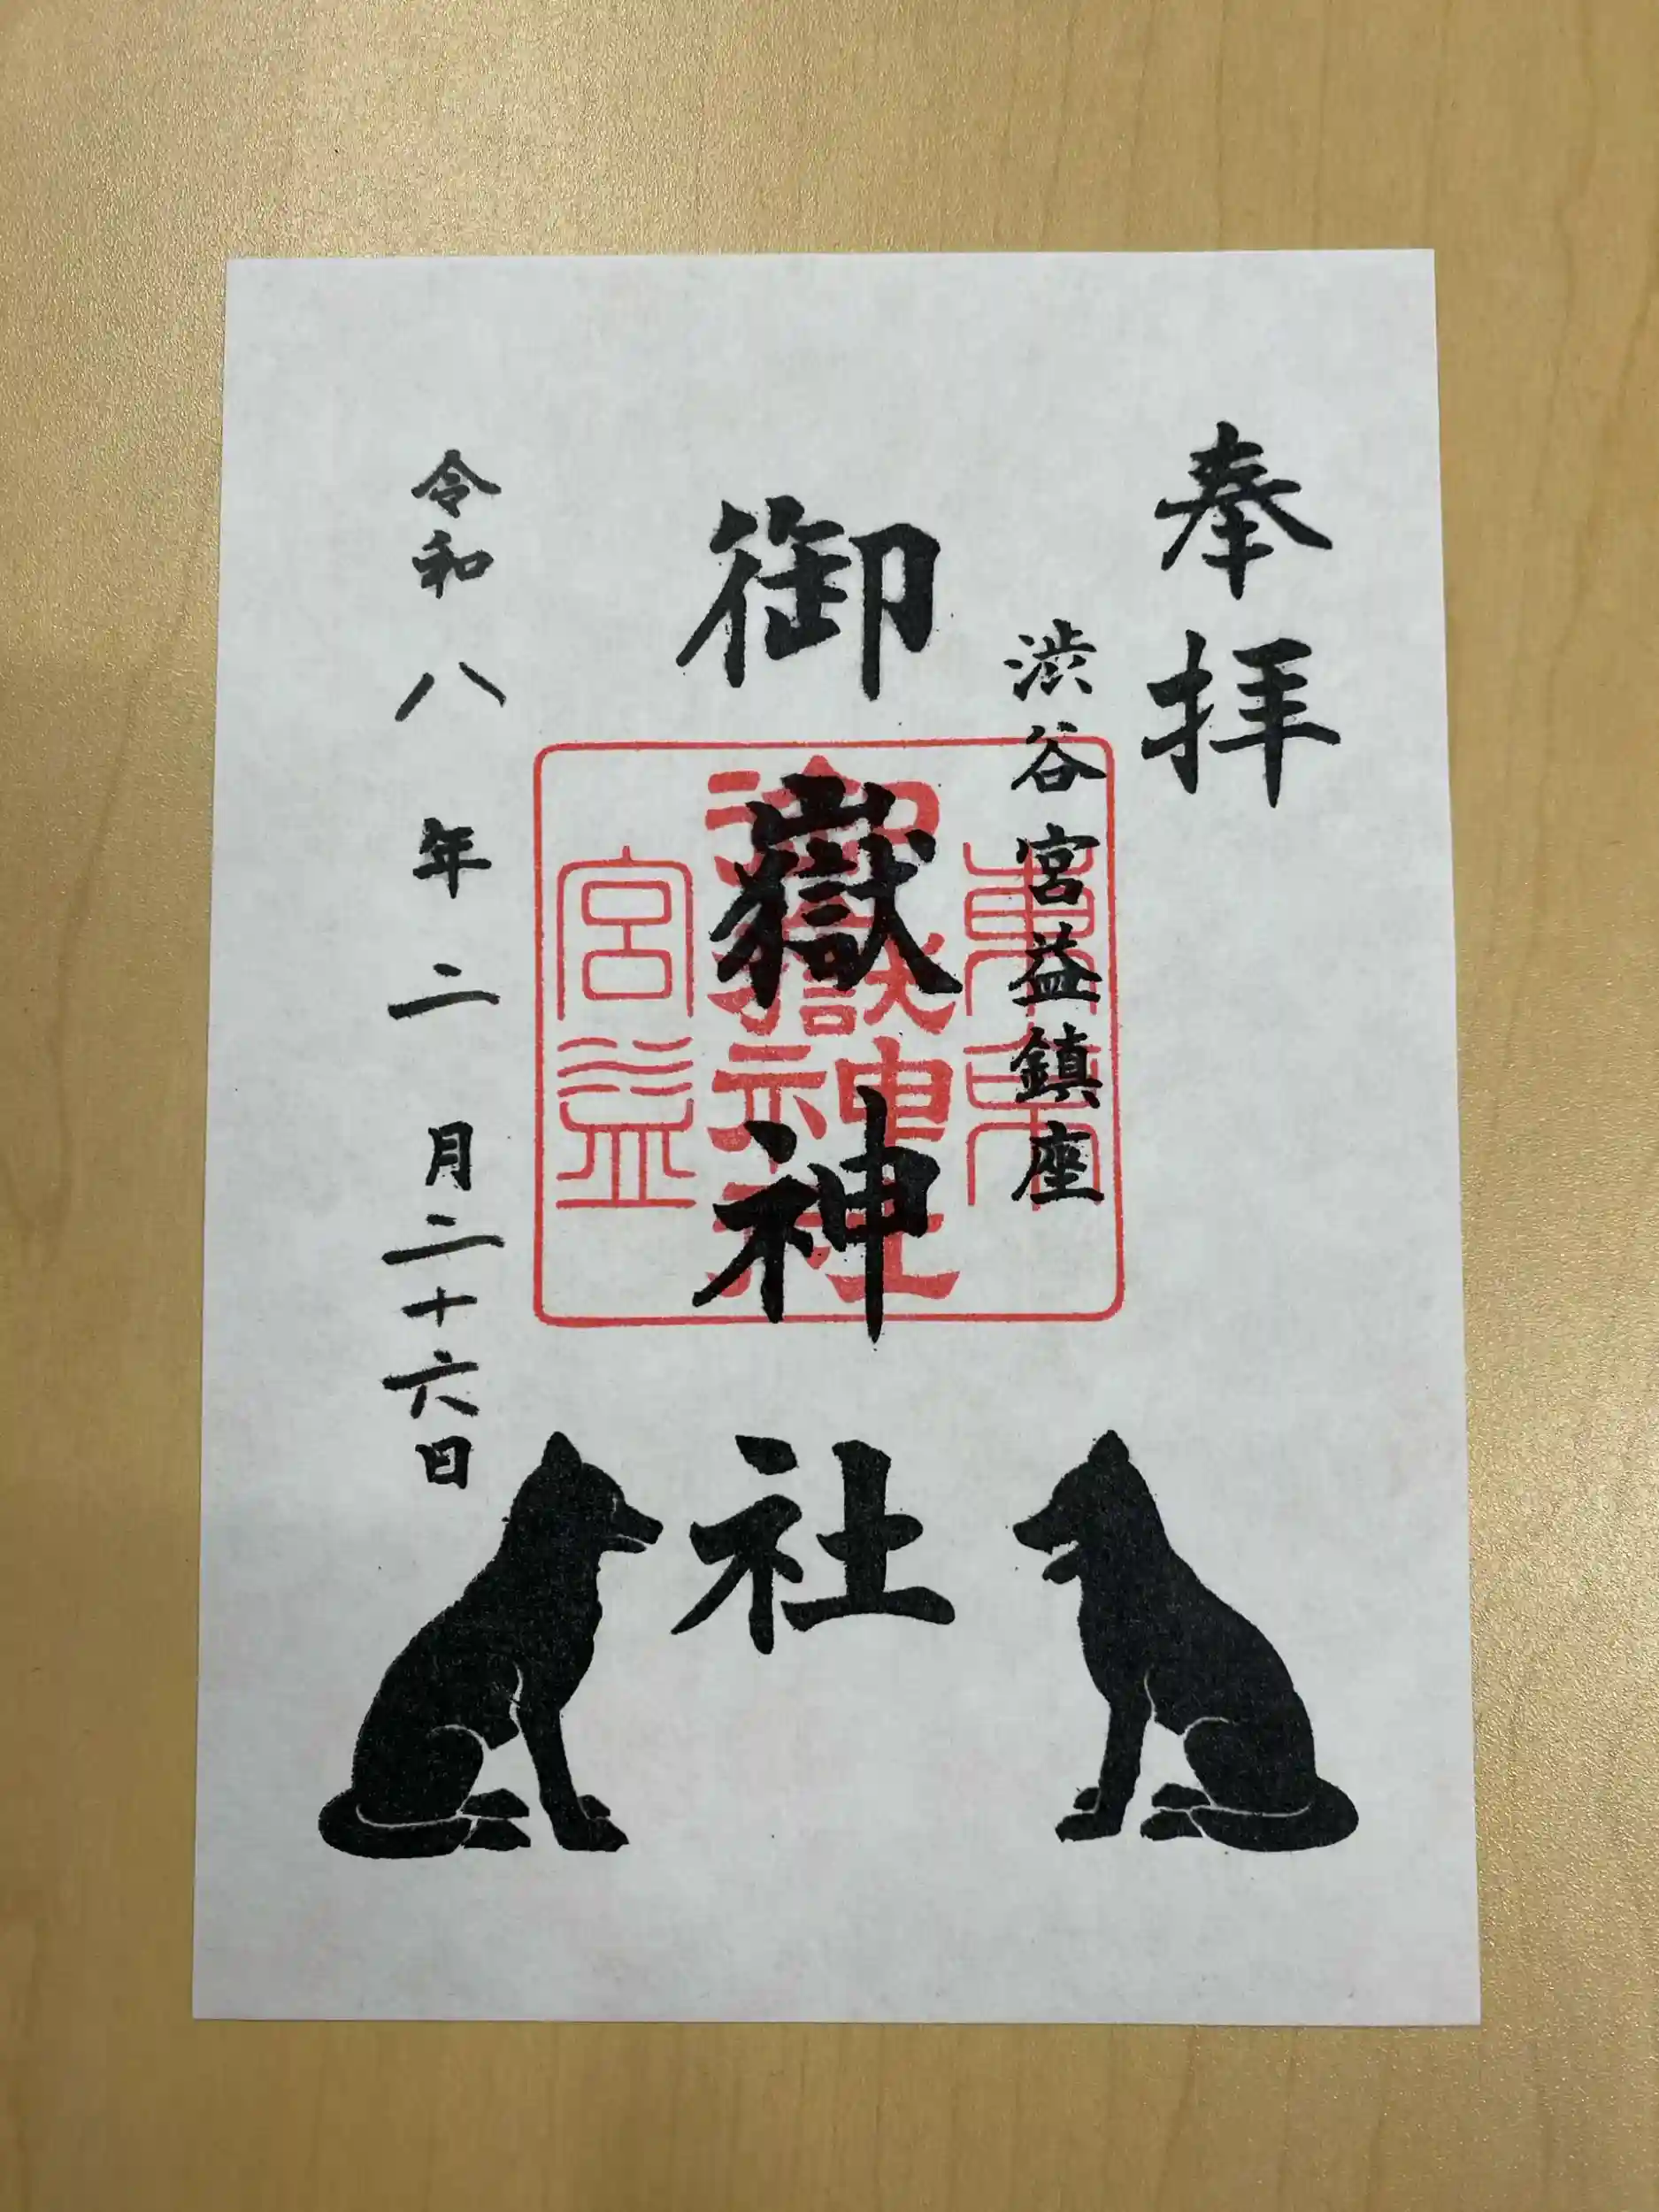 奉拝
渋谷宮益鎮座
御嶽神社
令和八年二月二十六日
東京
御嶽神社
宮益